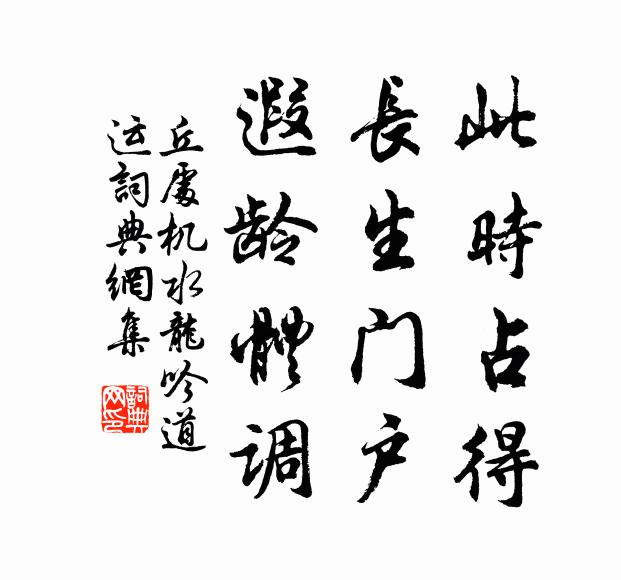 此時占得
長生門户
遐龄體调
丘處机水龍吟道
运詞典網集
詞典
网印